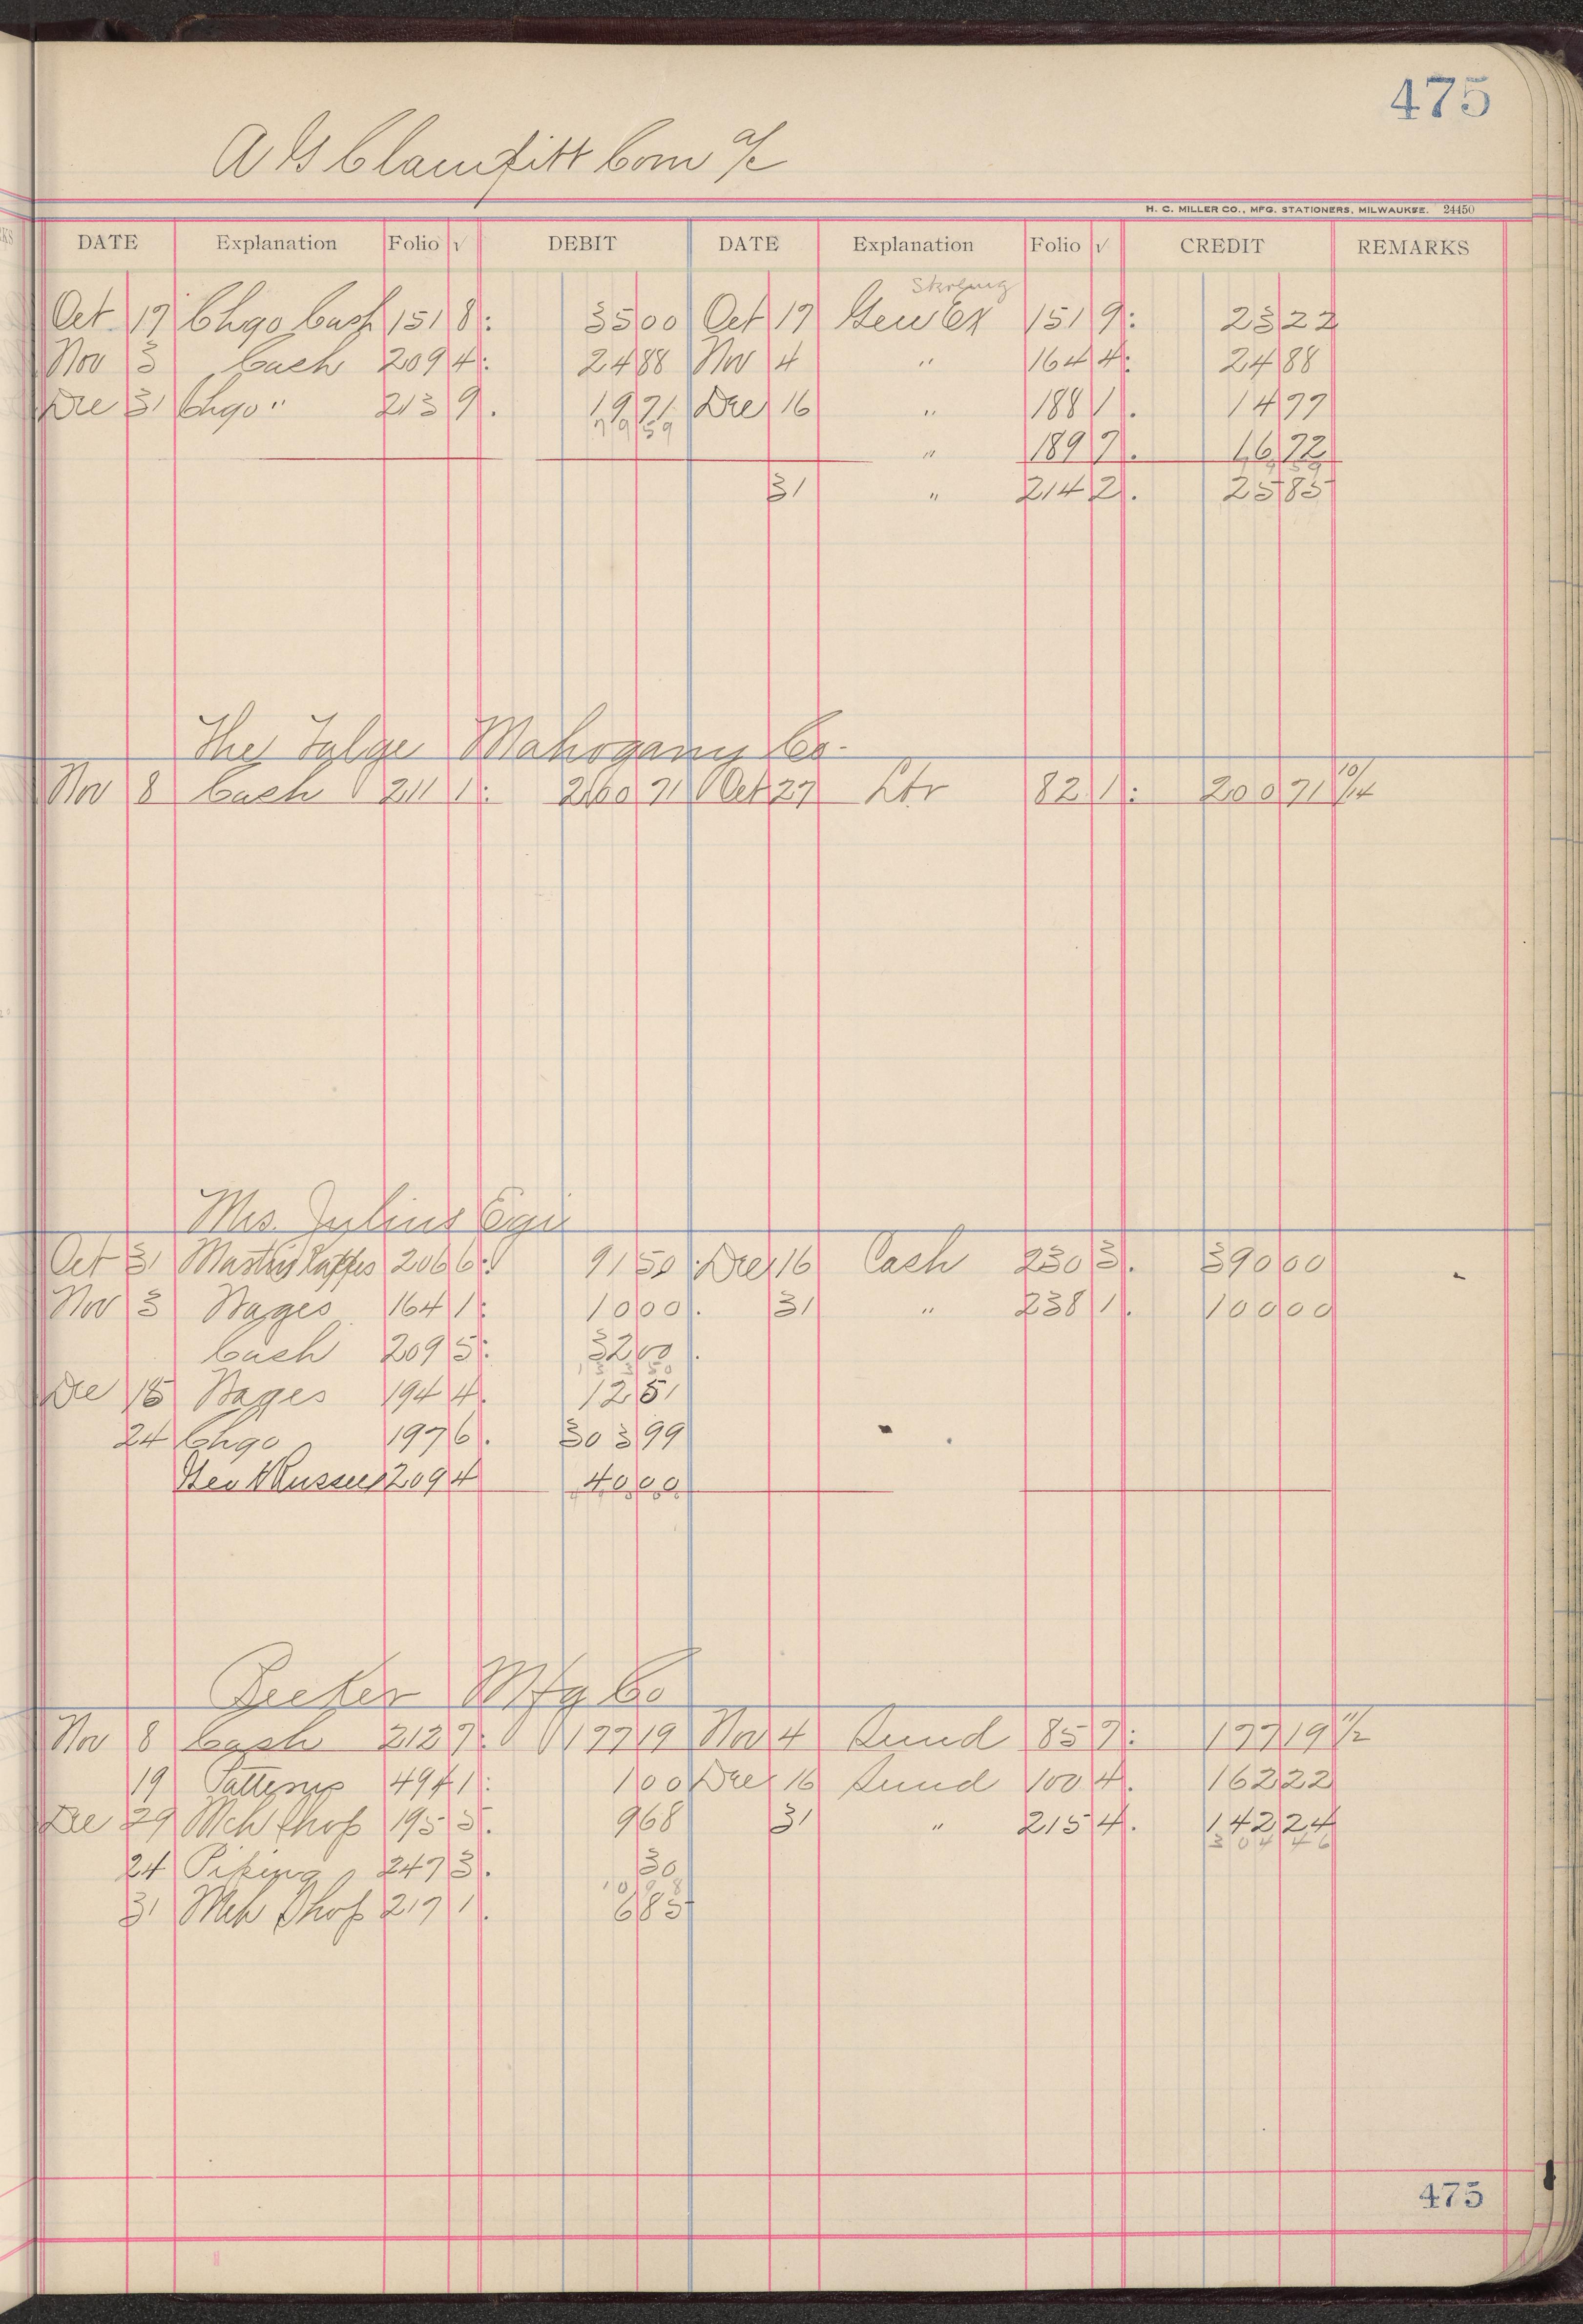 475
A G Clampitt Com a/c
H. C. MILLER CO., MFG. STATIONERS, MILWAUKEE. 24450
DATE Explanation Folio √ DEBIT DATE Explanation Folio √ CREDIT REMARKS
Oct 17 Chgo Cash 1518: 3500 Oct 17 Gen Ex 1519: 2322
Nov 3 Cash 2094: 2488 Nov 4 " 1644: 2488
Dec 31 Chgo " 2139. 1971 Dec 16 " 1881. 1477
7959
" 1897. 1672
31 " 2142. 2585
The Talge Mahogany Co.
Nov 8 Cash 2111: 20071 Oct 27 Ltr 821: 20071 10/14
Mrs. Julius
Oct 31 2066: 9150 Dec 16 Cash 2303. 39000
Nov 3 Wages 1641: 1000 31 " 2381. 10000
Cash 2095: 3200
13350
Dec 15 Wages 1944. 1251
24 Chgo 1976. 30399
Geo Russell 2094 4000
Mfg Co
Nov 8 Cash 2127: 17719 Nov 4 Sund 857: 17719 11/2
19 Patterns 4941: 100 Dec 16 Sund 1004. 16222
Dec 29 Mch Shop 1955. 968 31 " 2154. 14224
30446
24 Piping 2473. 30
1098
31 Mch Shop 2171. 685
475